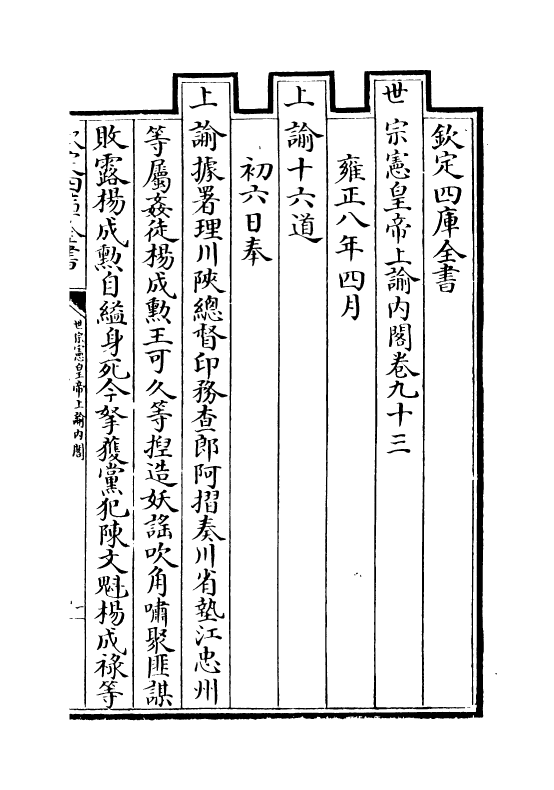 欽定四庫全書
世宗憲皇帝上諭內閣卷九十三
雍正八年四月
上諭十六道
初六日奉
上諭據署理川陝總督印務查郎阿摺奏川省墊江忠州
等屬姦徒楊成勲王可久等揑造妖謡吹角嘯聚匪謀
敗露楊成勲自縊身死今拏獲黨犯陳文魁楊成祿等
世宗憲皇帝上諭內閣
一